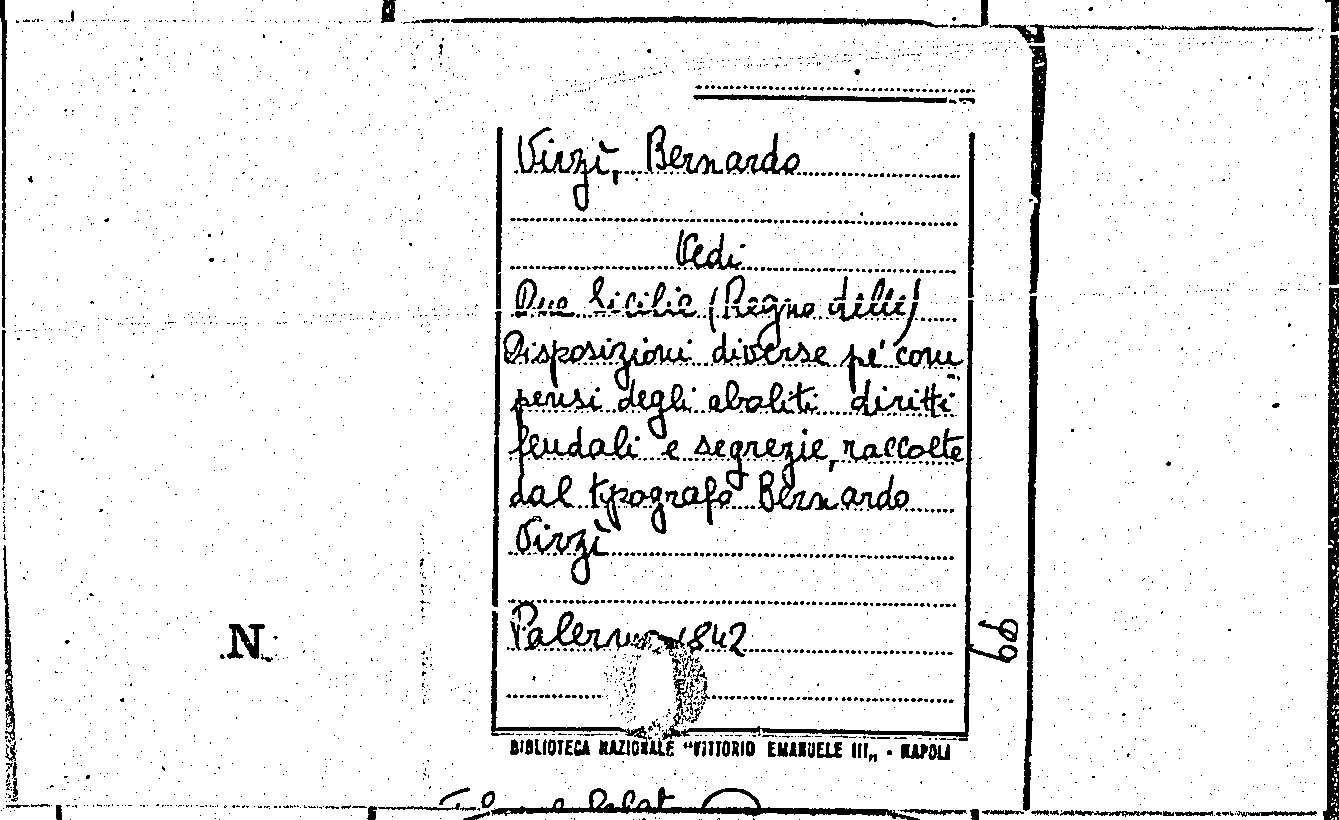 Virzì, Bernardo
Vedi
Due Sicilie (Regno delle)
Disposizioni diverse pe' com
pensi degli aboliti diritti
feudali e segrezie, raccolte
dal tipografo Bernardo
Virzì
Palermo 1842
N
99
BIBLIOTECA NAZIONALE "VITTORIO EMANUELE III„ - NAPOLI